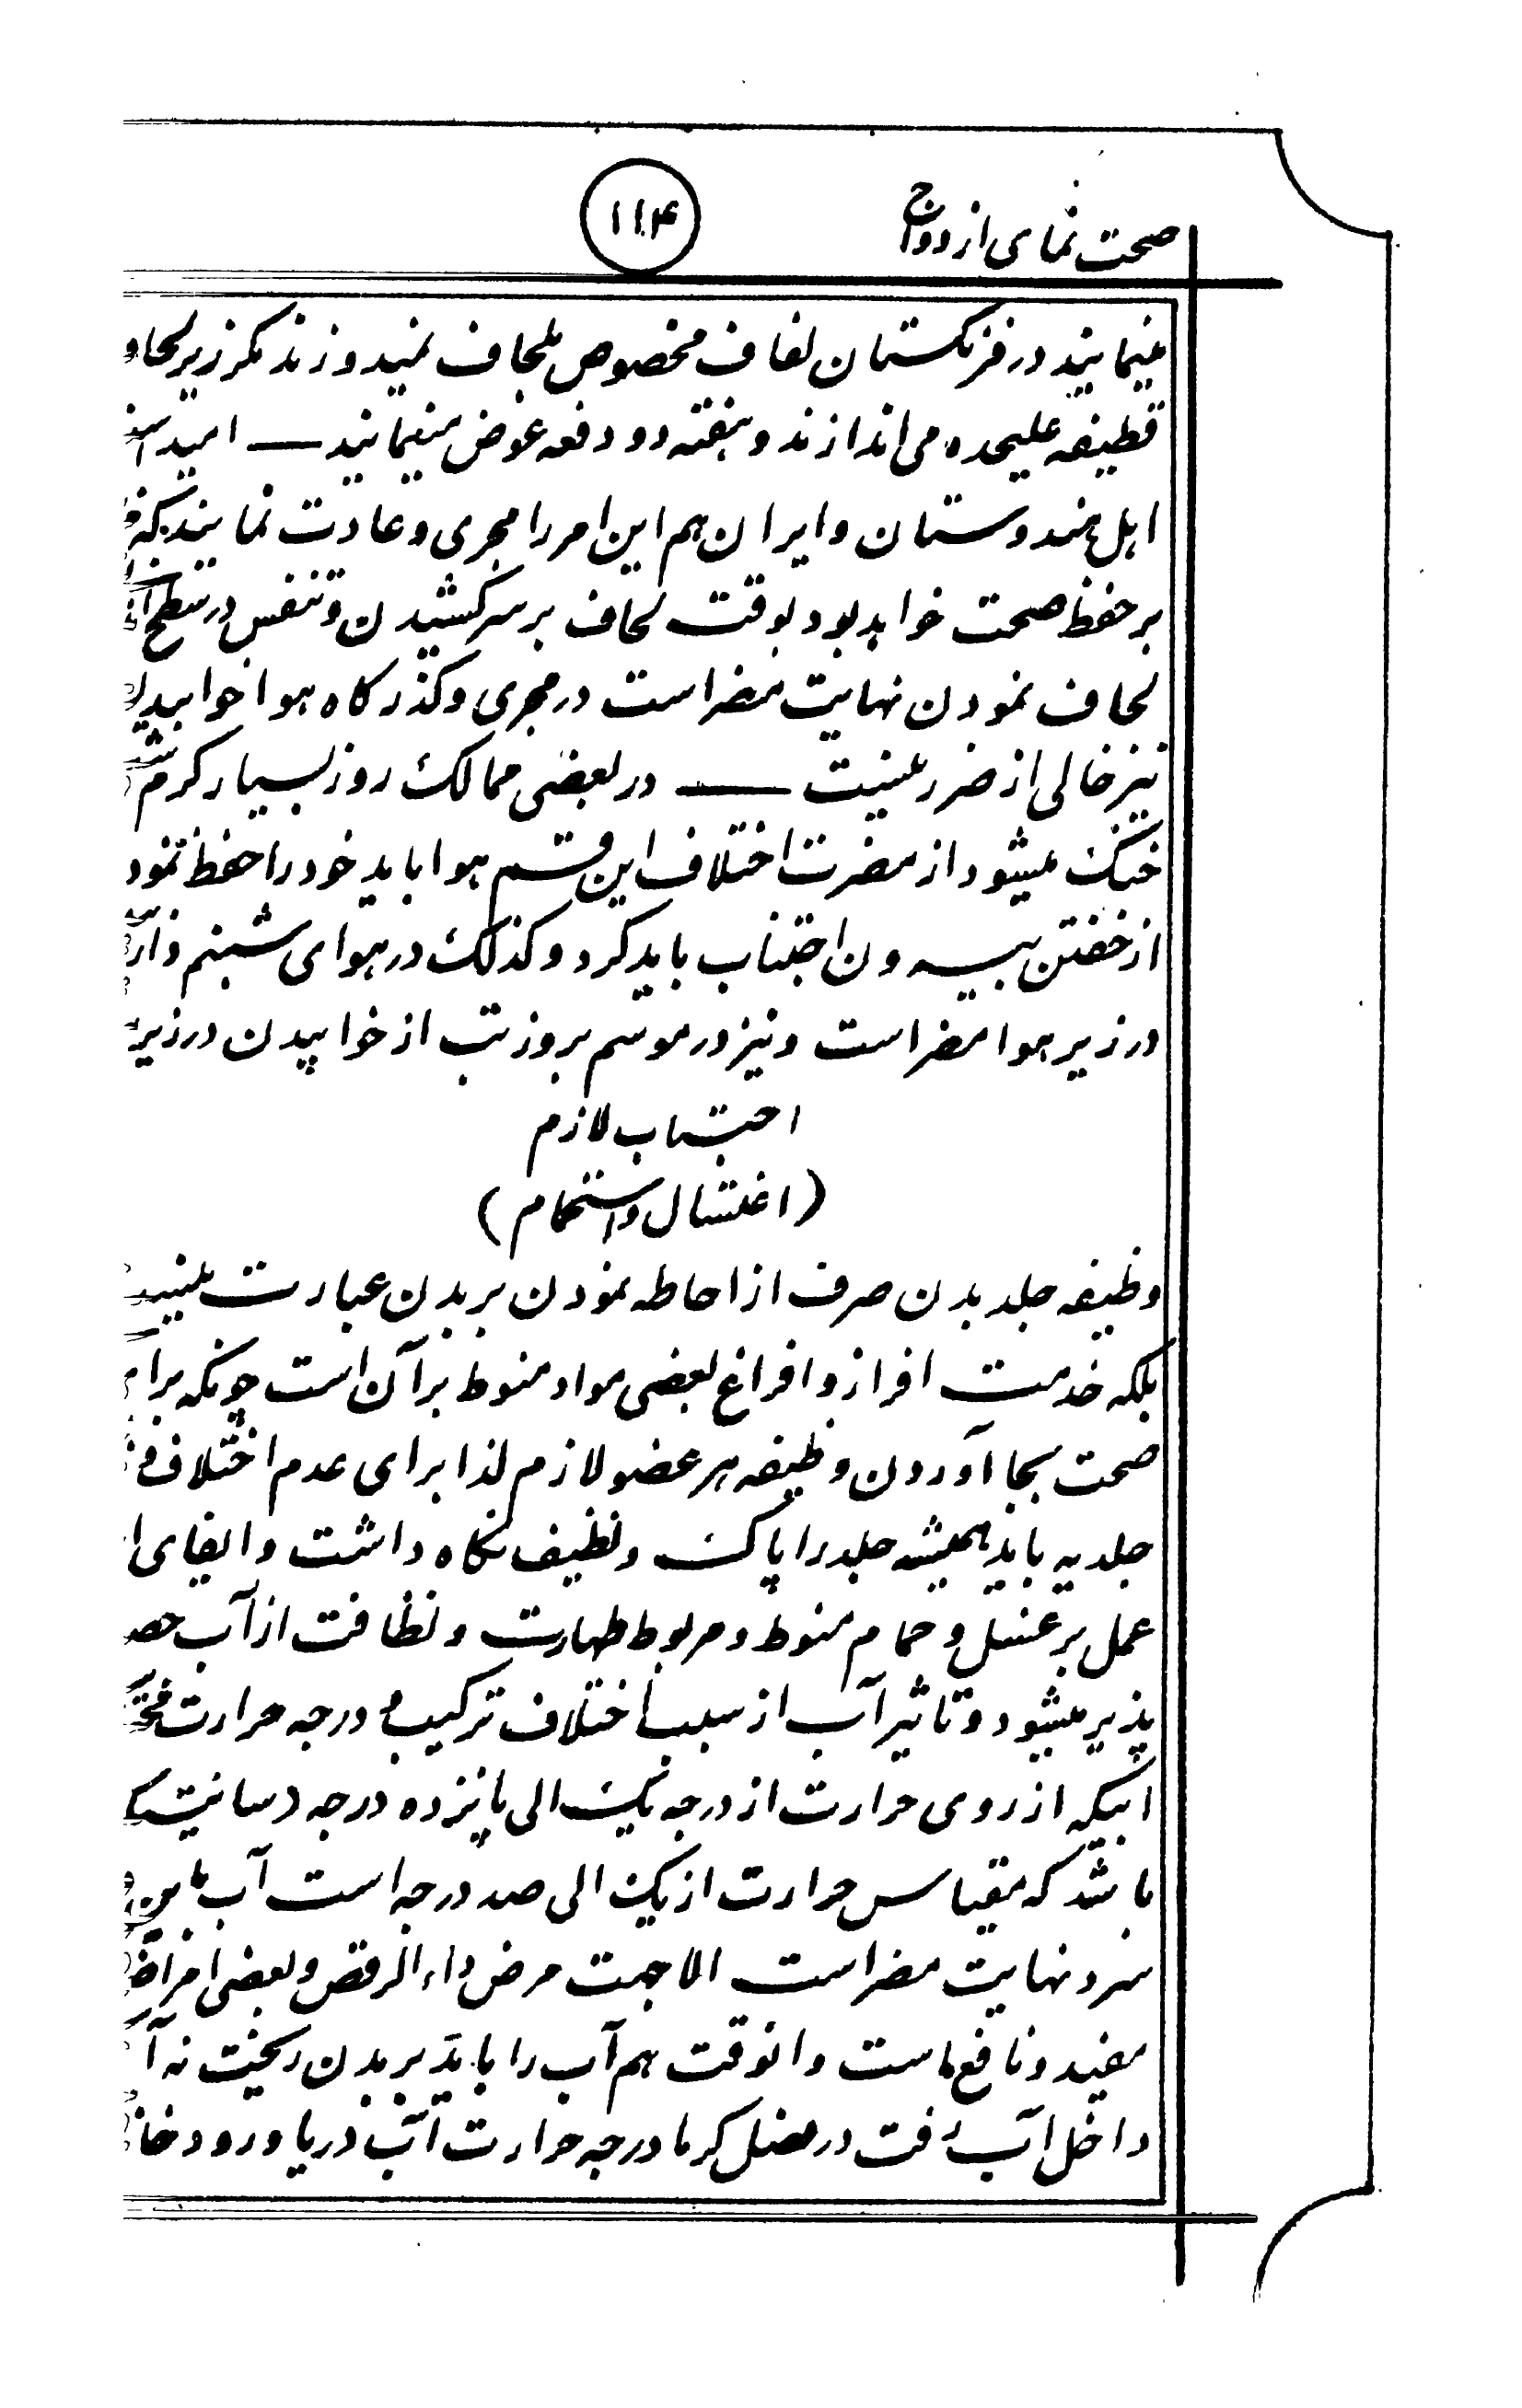 صحت نمای ازدواج
۱۱۴
مینمایند در فرنگستان لفاف مخصوص بلحاف نمیدوزند مگر زیر لحاف
قطیفه علیحده می اندازند و هفته دو دفعه عوض مینمایند — امید است
اهل هندوستان و ایران هم این امر را مجری و عادت نمایند که
بر حفظ صحت خواهد بود بوقت لحاف بر سر کشیدن و تنفس در سطح
لحاف نمودن نهایت مضر است در مجری و گذرگاه هوا خوابیدن
نیز خالی از ضرر نیست — در بعضی ممالک روز بسیار گرم شب
خنک میشود از مضرت اختلاف این قسم هوا باید خود را حفظ نمود
از خفتن بیرون اجتناب باید کرد و کذلک در هوای شبنم دار
در زیر هوا مضر است و نیز در موسم بروز تب از خوابیدن در زیر
اجتناب لازم
(اغتسال و استحمام)
وظیفه جلد بدن صرف از احاطه نمودن بر بدن عبارت نیست
بلکه خدمت افراز و افراغ بعضی مواد منوط بر آن است چونکه برای
صحت بجا آوردن وظیفه هر عضو لازم لذا برای عدم اختلاف
جلدیه باید همیشه جلد را پاک و نظیف نگاه داشت و ایفای
عمل بر غسل و حمام منوط و مربوط طهارت و نظافت از آب
پذیر میشود و تاثیر آب از سبب اختلاف ترکیب و درجه حرارت
آبیکه از روی حرارت از درجه یک الی پانزده درجه (سانتی
باشد که مقیاس حرارت از یک الی صد درجه است آب
سرد نهایت مضر است الا جهت مرض داء الرقص و بعضی امراض
مفید و نافع است و انوقت هم آب را باید بر بدن ریخت نه
داخل آب رفت در فصل گرما درجه حرارت آب دریا و رودخانه